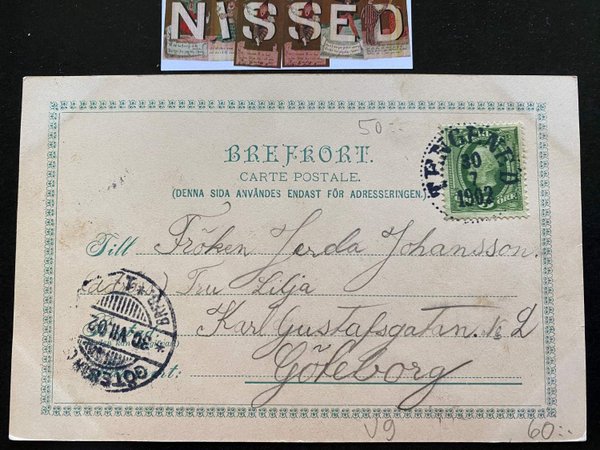 NISSED
50:-
BREFKORT.
CARTE POSTALE.
(DENNA SIDA ANVÄNDES ENDAST FÖR ADRESSERINGEN.)
30
7
1902
ÖRE
Till Fröken Gerda Johansson.
Fru Lilja
Karl Gustafsgatan. № 2
Göteborg
30.VII.02
GÖTEBORG
V9
60:-